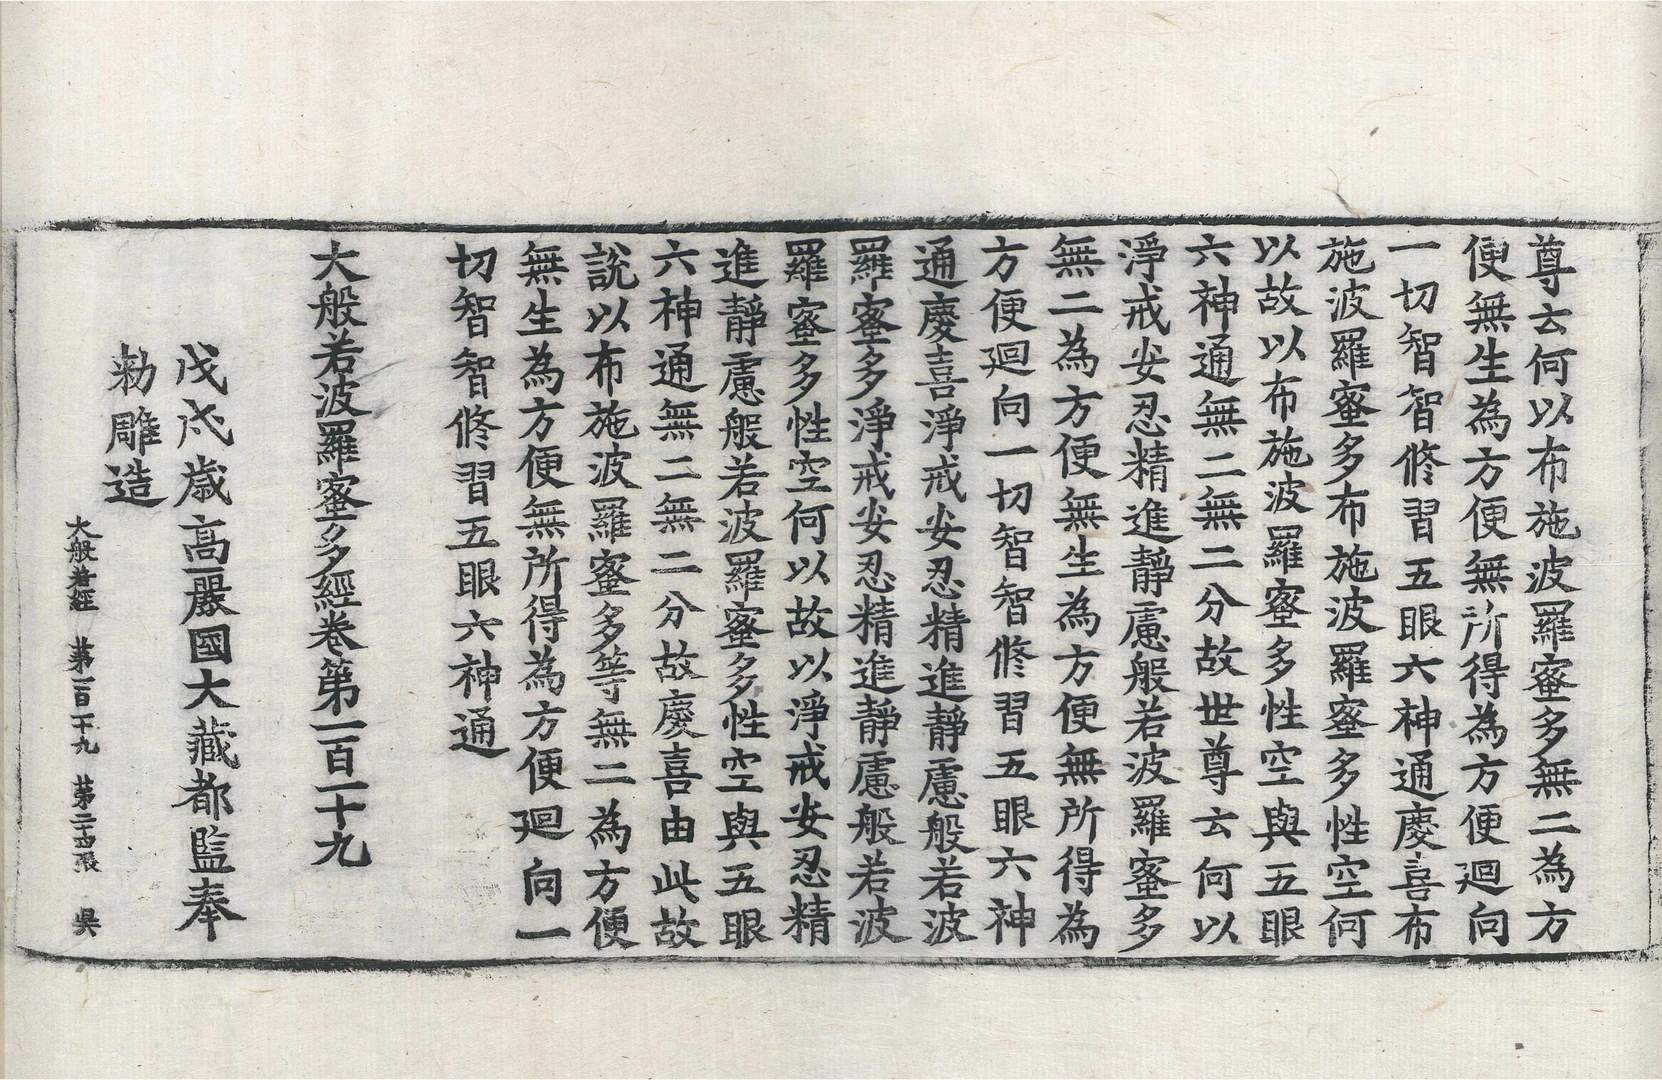 尊云何以布施波羅蜜多無二為方
便無生為方便無所得為方便迴向
一切智智修習五眼六神通慶喜布
施波羅蜜多布施波羅蜜多性空何
以故以布施波羅蜜多性空與五眼
六神通無二無二分故世尊云何以
淨戒安忍精進靜慮般若波羅蜜多
無二為方便無生為方便無所得為
方便迴向一切智智修習五眼六神
通慶喜淨戒安忍精進靜慮般若波
羅蜜多淨戒安忍精進靜慮般若波
羅蜜多性空何以故以淨戒安忍精
進靜慮般若波羅蜜多性空與五眼
六神通無二無二分故慶喜由此故
說以布施波羅蜜多等無二為方便
無生為方便無所得為方便迴向一
切智智修習五眼六神通
大般若波羅蜜多經卷第一百一十九
戊戌歲高麗國大藏都監奉
勑雕造
大般若經 第一百一十九 第二十四張 吳